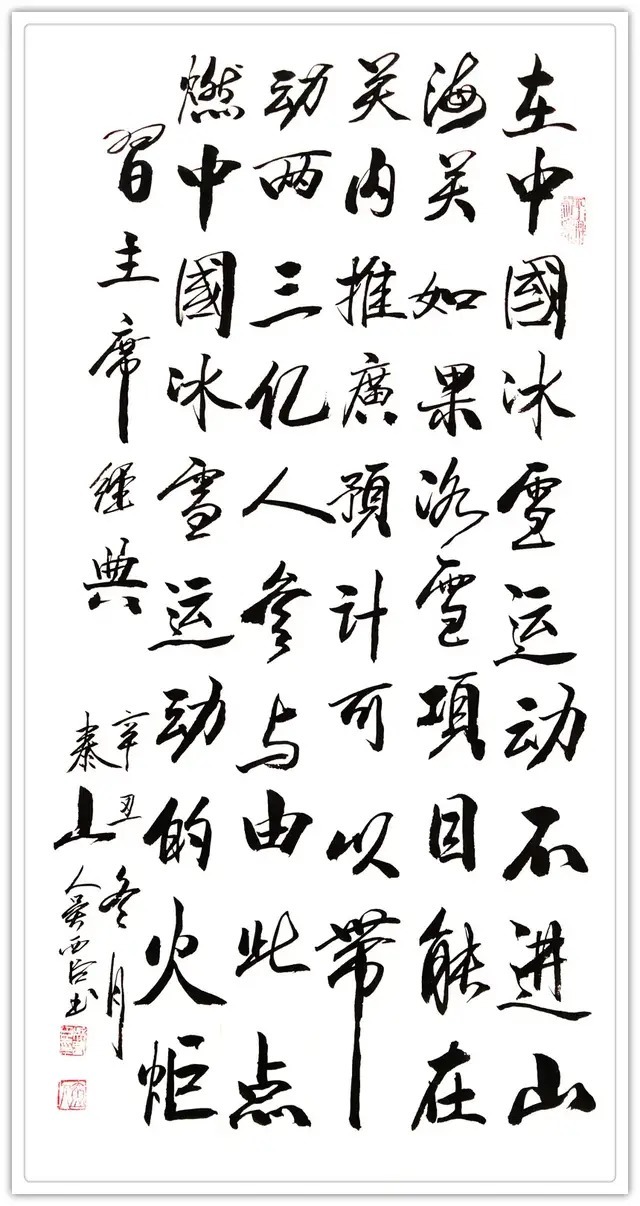 在中國冰雪运动不进山
海关如果冰雪項目能在
关内推廣預计可以帶
动两三亿人参与由此点
燃中國冰雪运动的火炬
習主席經典
辛丑冬月
泰山人吳西书